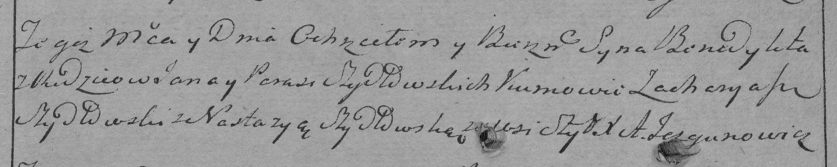 Tegoż Mca y Dnia Ochrzciłem y Bierzm Syna Benedykta
z Rodziców Jana y Parasi Szydłowskich Kumowie Zacharyasz
Szydłowski z Nastazyą Szydłowską z wsi Szył X A. Jazgunowicz